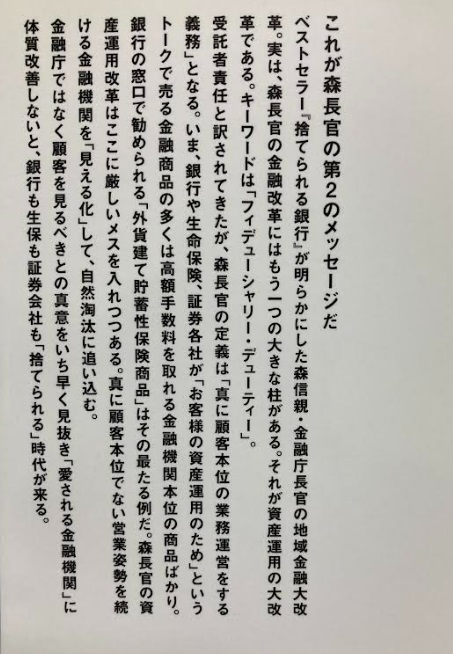 これが森長官の第2のメッセージだ
ベストセラー『捨てられる銀行』が明らかにした森信親・金融庁長官の地域金融大改
革。実は、森長官の金融改革にはもう一つの大きな柱がある。それが資産運用の大改
革である。キーワードは「フィデューシャリー・デューティー」。
受託者責任と訳されてきたが、森長官の定義は「真に顧客本位の業務運営をする
義務」となる。いま、銀行や生命保険、証券各社が「お客様の資産運用のため」という
トークで売る金融商品の多くは高額手数料を取れる金融機関本位の商品ばかり。
銀行の窓口で勧められる「外貨建て貯蓄性保険商品」はその最たる例だ。森長官の資
産運用改革はここに厳しいメスを入れつつある。真に顧客本位でない営業姿勢を続
ける金融機関を「見える化」して、自然淘汰に追い込む。
金融庁ではなく顧客を見るべきとの真意をいち早く見抜き「愛される金融機関」に
体質改善しないと、銀行も生保も証券会社も「捨てられる」時代が来る。